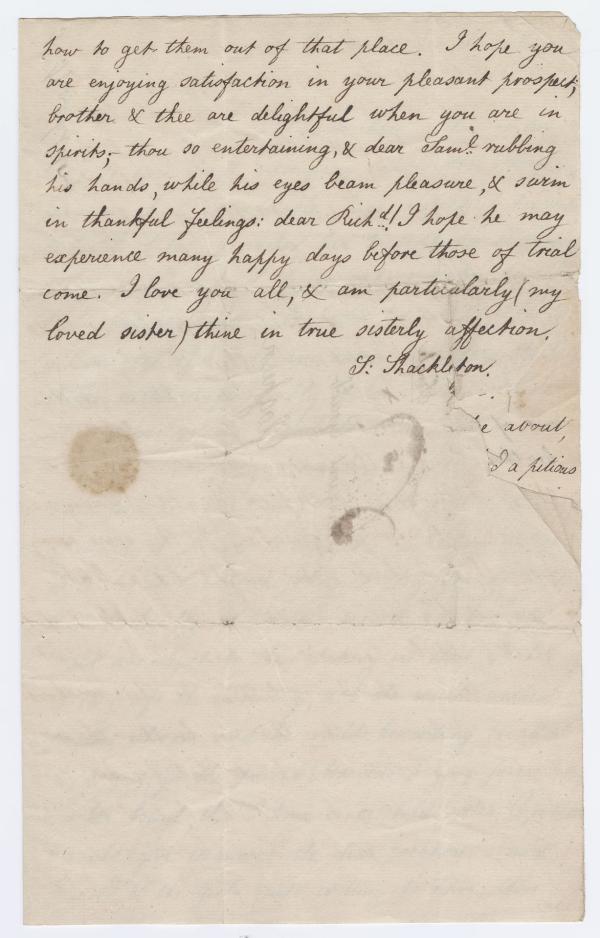 how to get them out of that place. I hope you
are enjoying satisfaction in your pleasant prospect;
brother & thee are delightful when you are in
spirits;– thou so entertaining, & dear Saml. rubbing
his hands, while his eyes beam pleasure, & swim
in thankful feelings: dear Richd.! I hope he may
experience many happy days before those of trial
come. I love you all, & am particularly (my
loved sister) thine in true sisterly affection.
S: Shackleton.
e about,
d a pitious